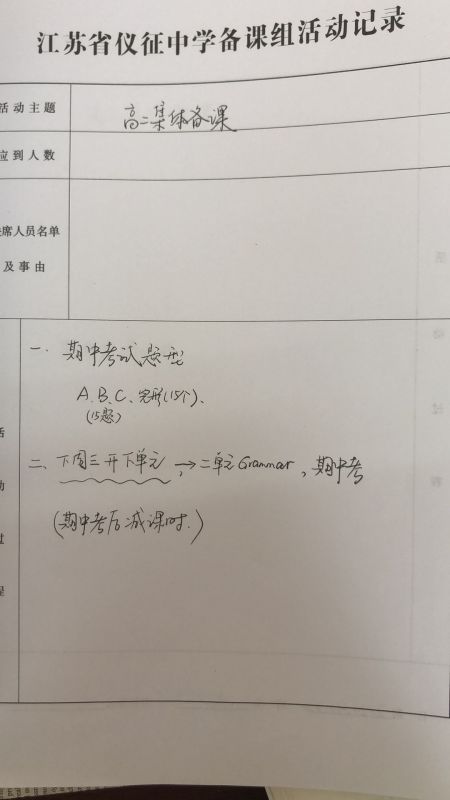 江苏省仪征中学备课组活动记录
活动主题
高二集体备课
应到人数
缺席人员名单
及事由
一、期中考试题型
A.B.C、完形(15个)、
(15题)
二、下周三开下单元，→二单元Grammar，期中考
(期中考后减课时.)
活
动
过
程